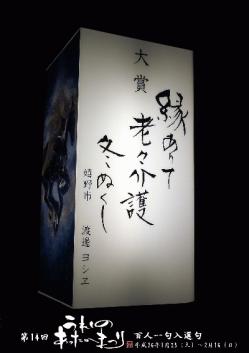 大賞
縁ありて
老々介護
冬ぬくし
嬉野市 渡邊 ヨシヱ
第14回 うれしの あったかまつり 百人一句入選句
平成26年1月25(土)~2月16(日)